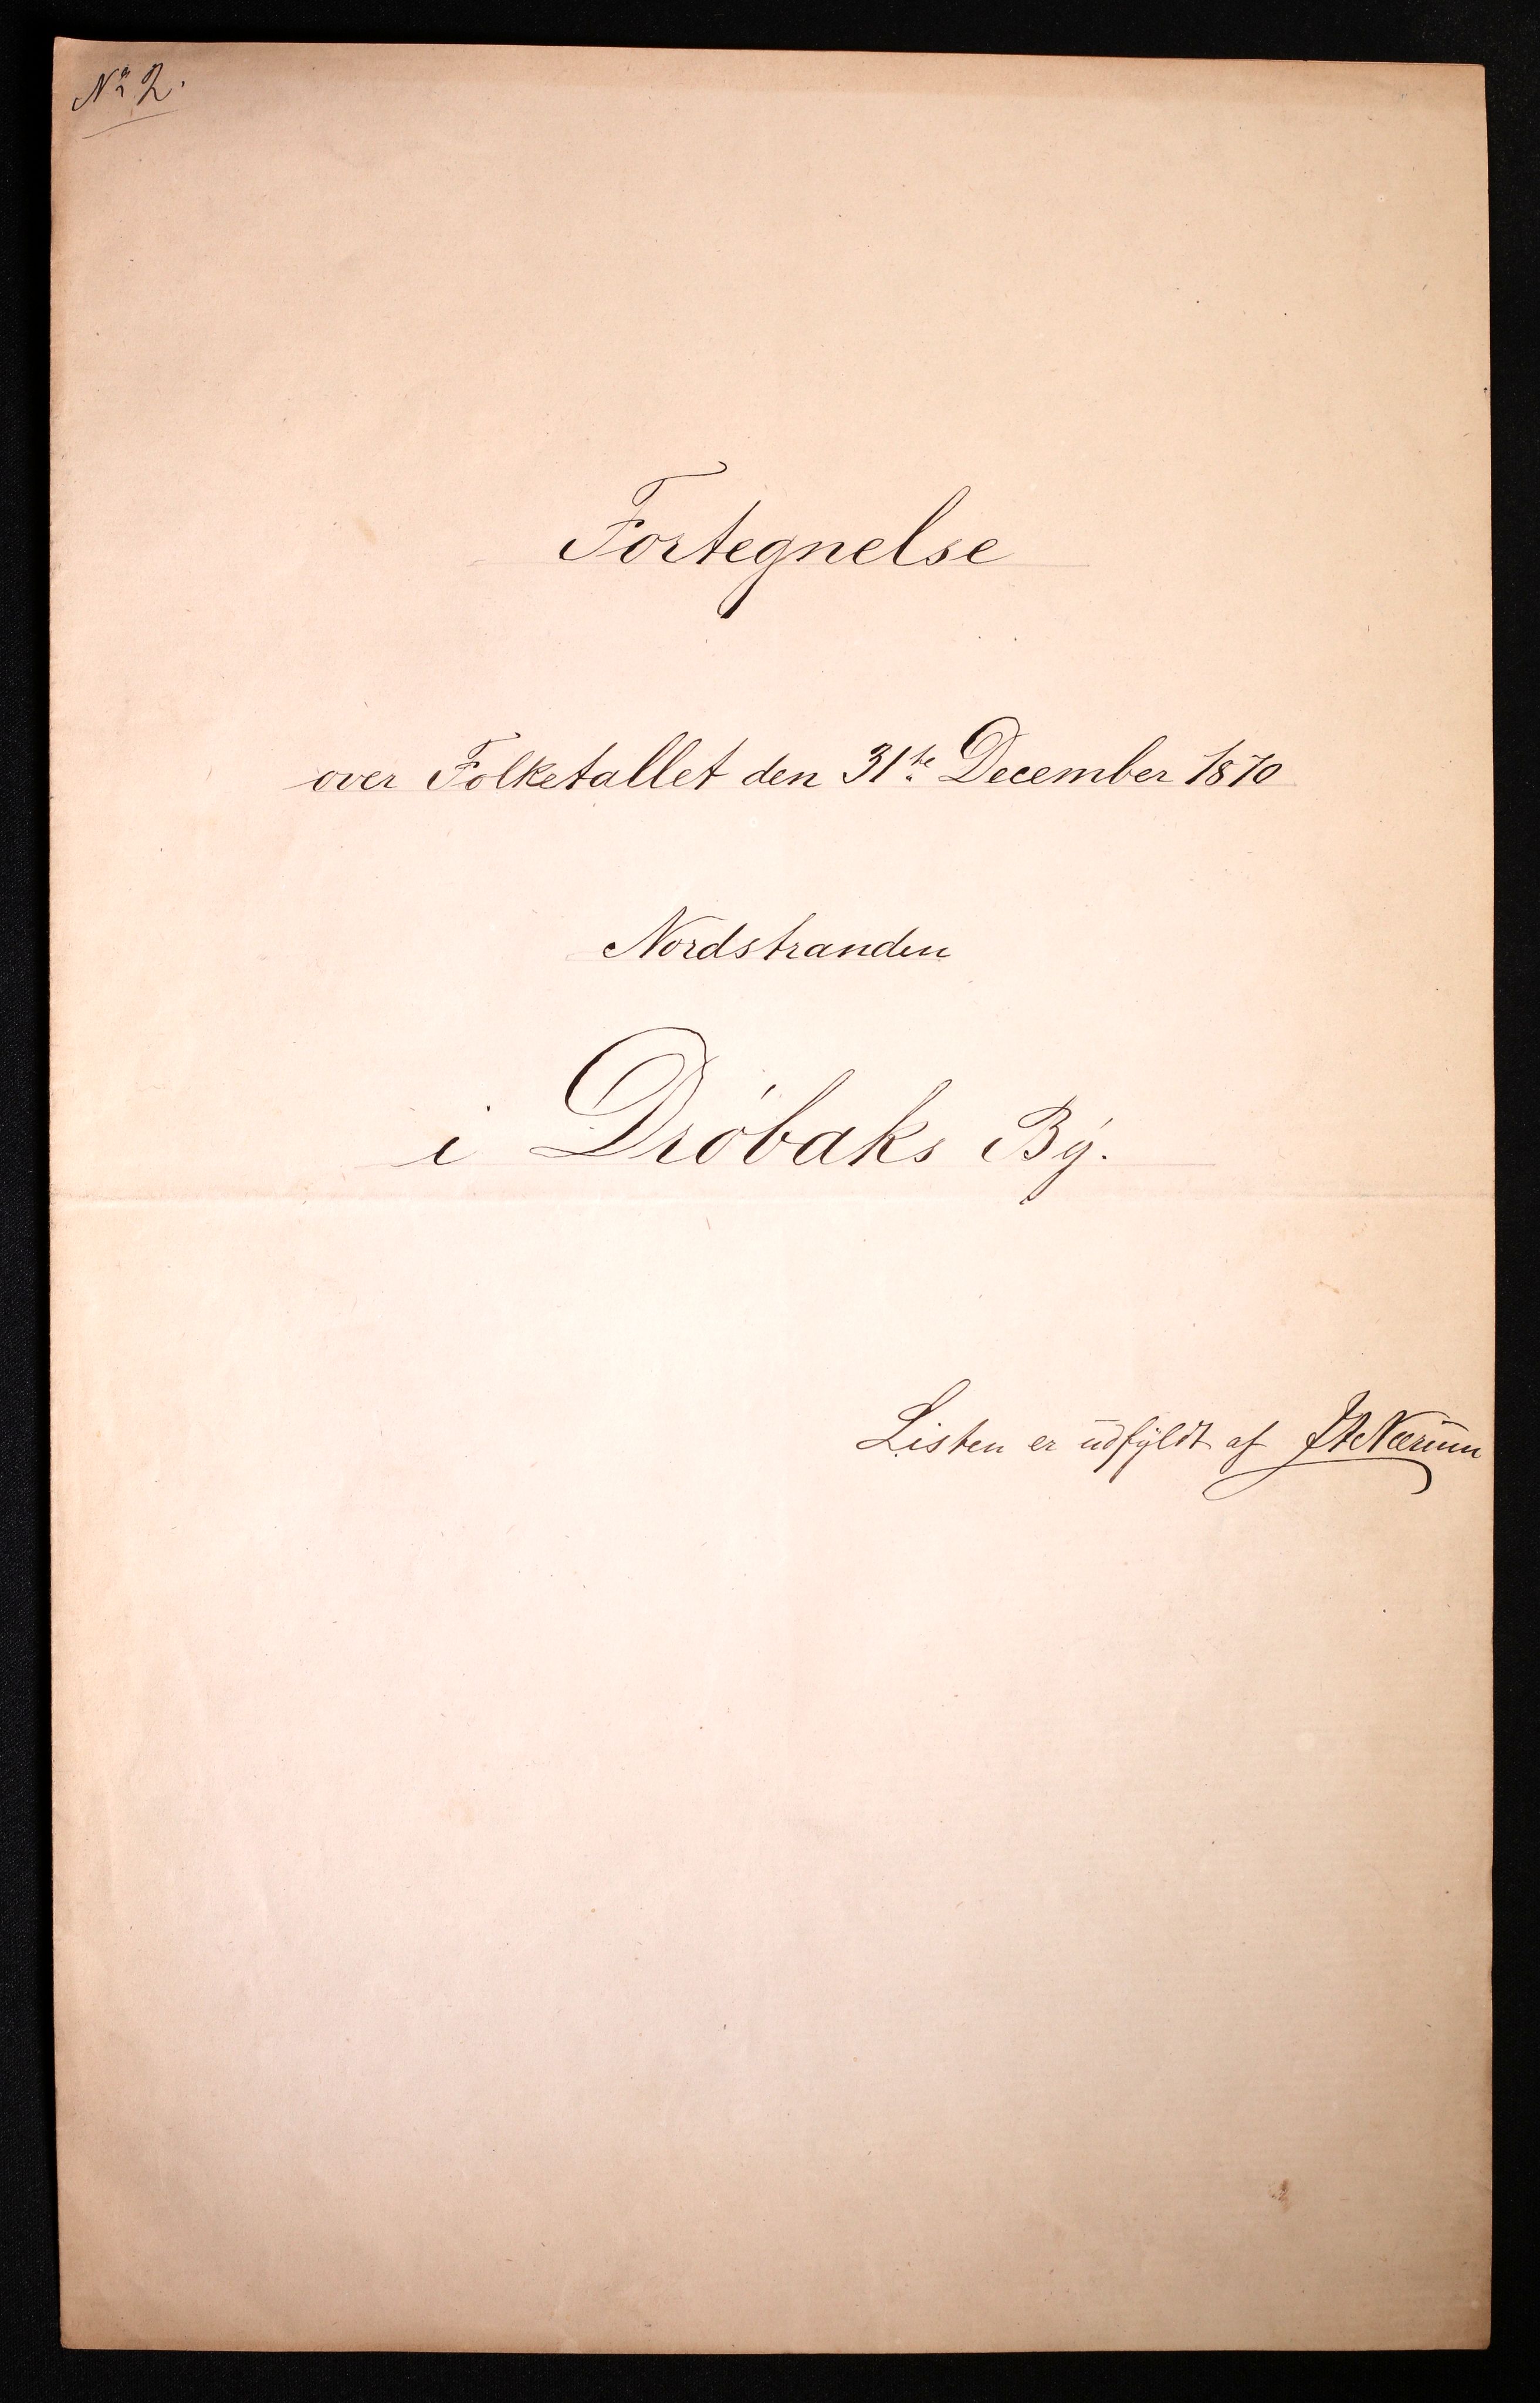 No 2.
Fortegnelse
over Folketallet den 31te December 1870
Nordstranden
i Dröbaks By.
Listen er udfyldt af Nærum